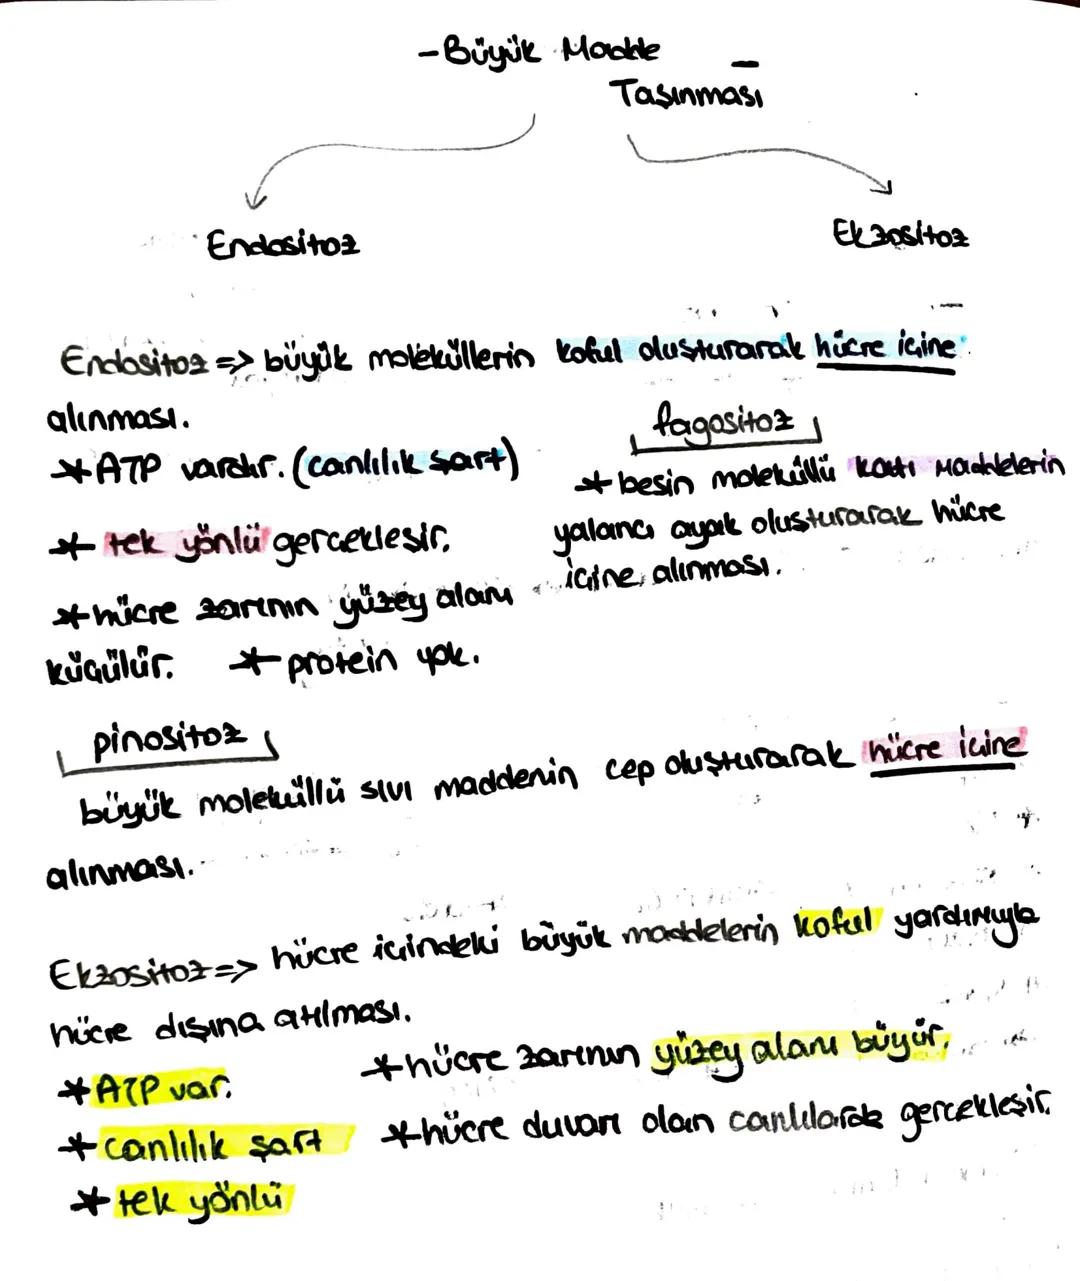 - Büyük Madde
Taşınması
Endositoz
Ekzositoz
Endositoz => büyük moleküllerin koful oluşturarak hücre içine
alınması.
* ATP vardır. (canlılık şart)
* tek yönlü gerçekleşir.
* hücre zarının yüzey alanı
küçülür. * protein yok.
fagositoz
* besin moleküllü katı maddelerin
yalancı ayak oluşturarak hücre
içine alınması.
pinositoz
büyük moleküllü sıvı maddenin cep oluşturarak hücre içine
alınması.
Ekzositoz => hücre içindeki büyük maddelerin koful yardımıyla
hücre dışına atılması.
* ATP var.
* canlılık şart
* tek yönlü
* hücre zarının yüzey alanı büyür.
* hücre duvarı olan canlılarda gerçekleşir.